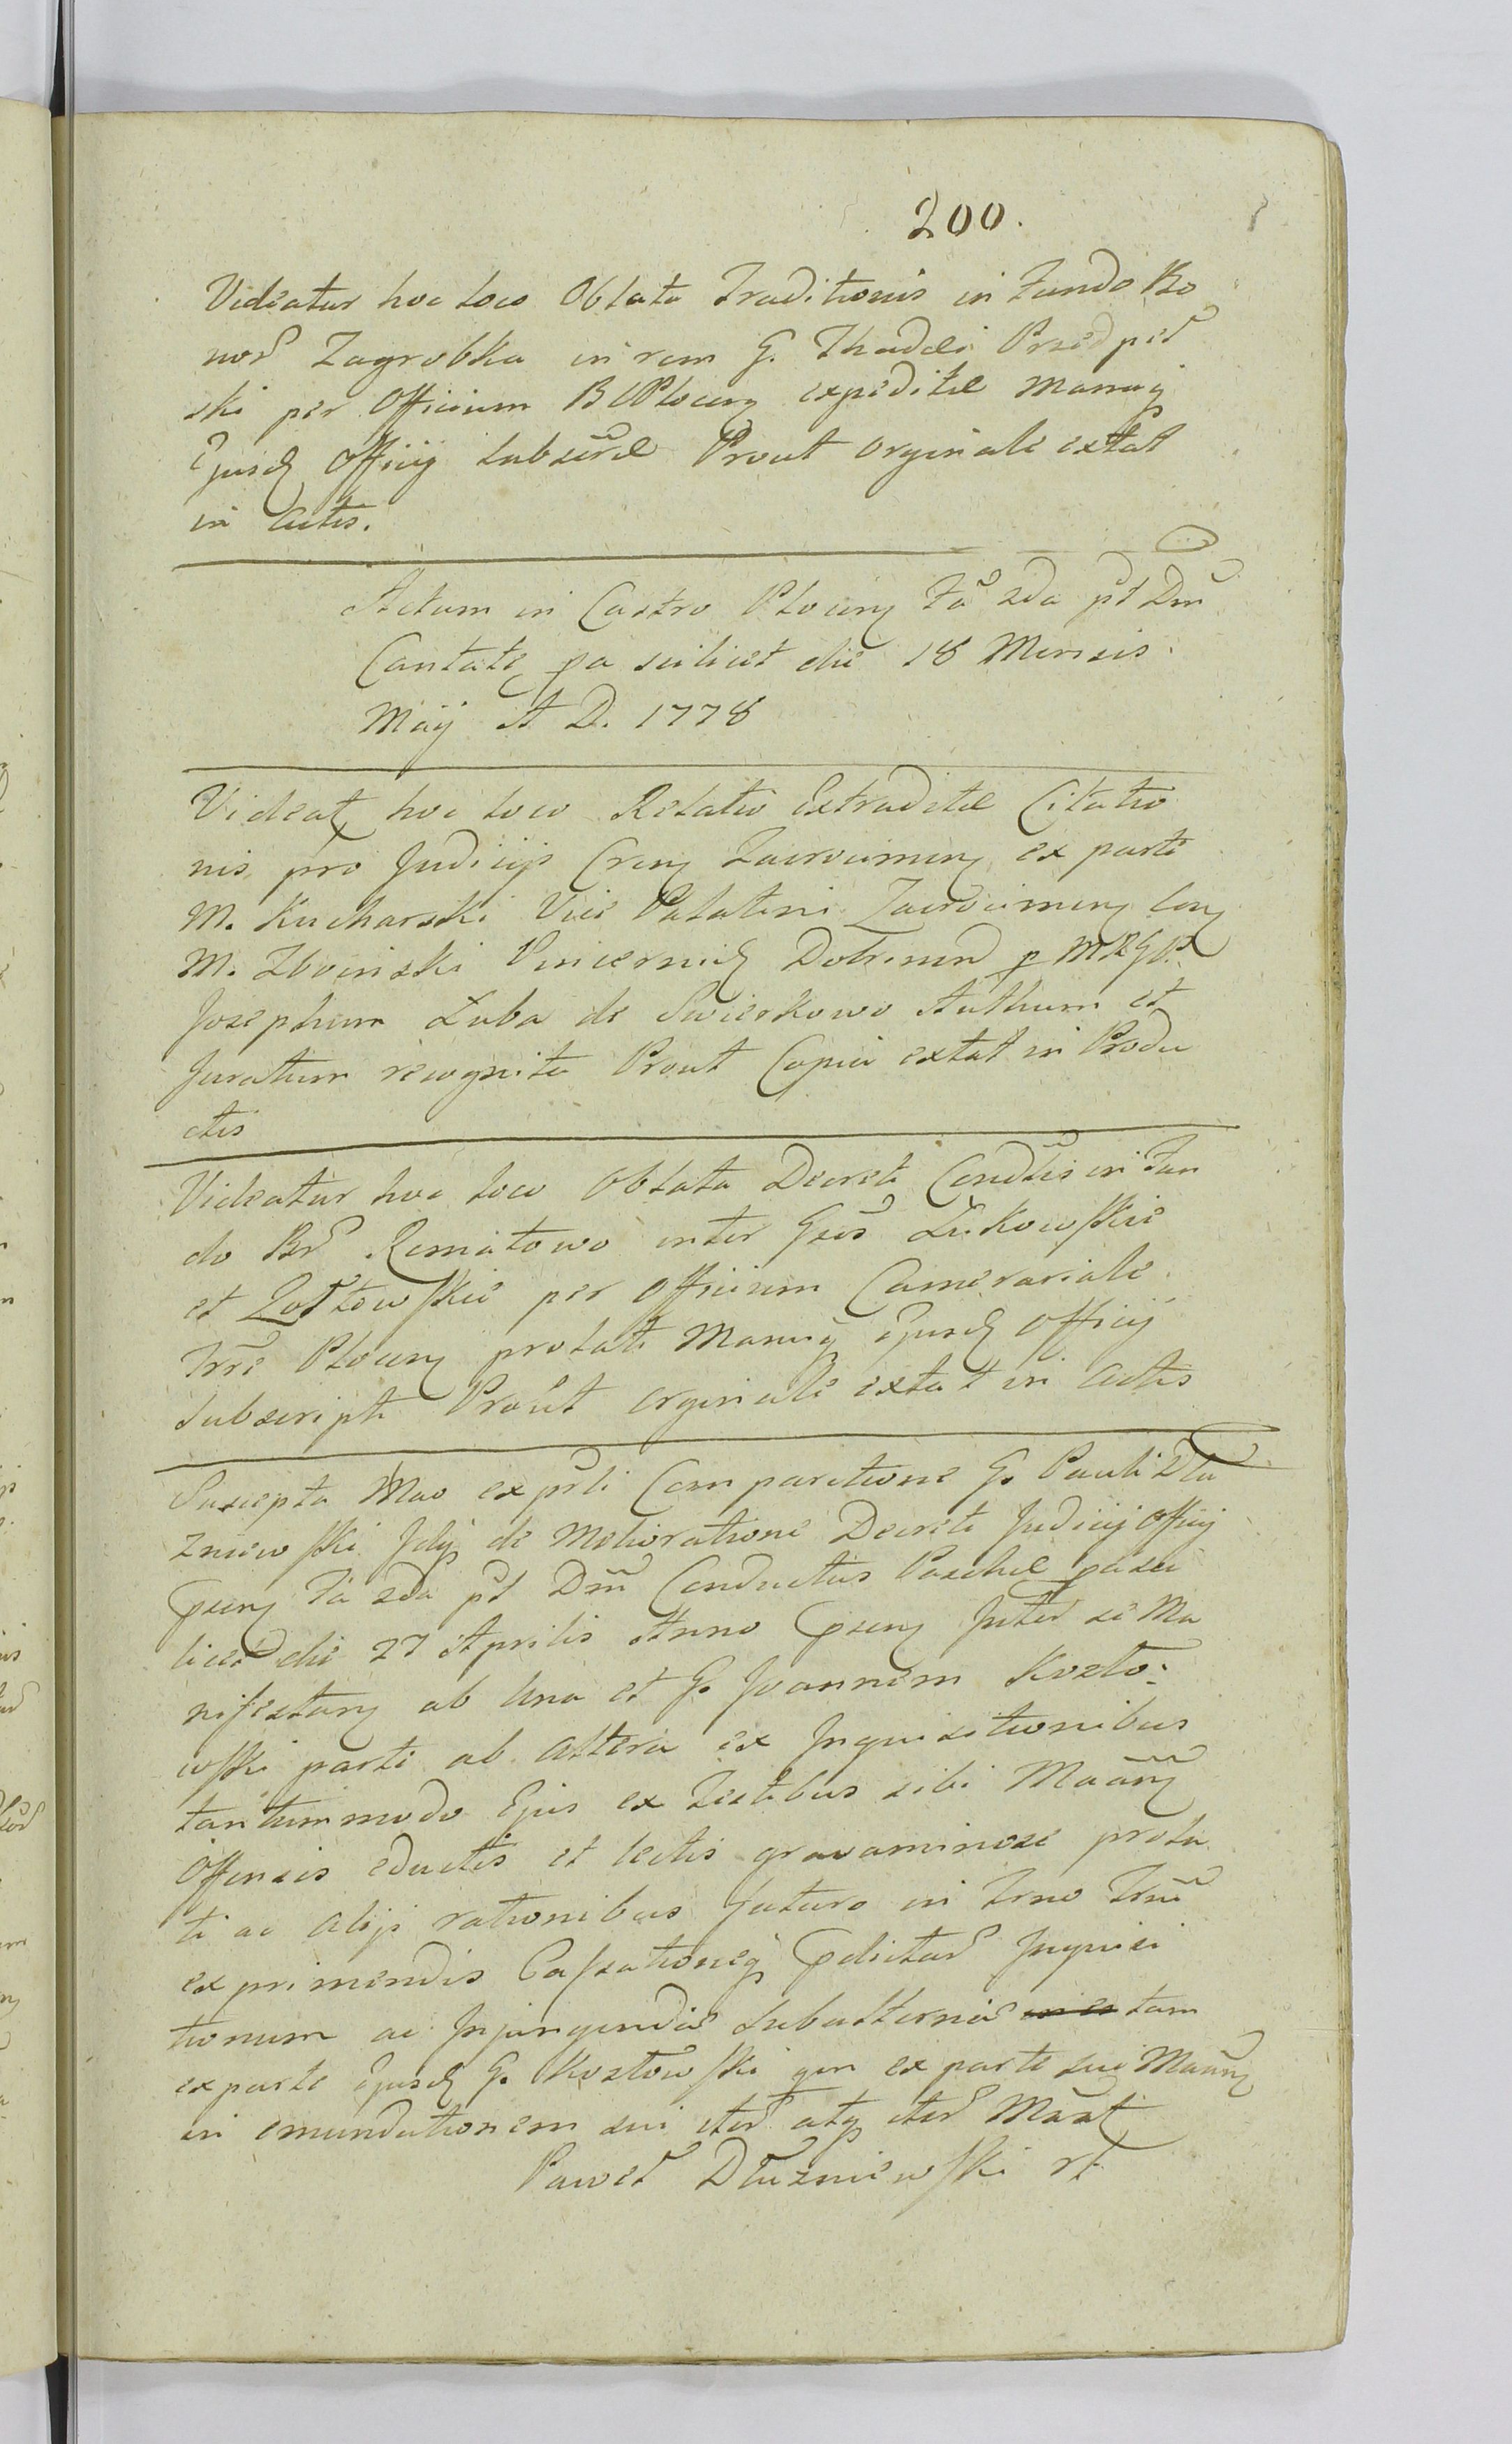 200.
Videatur hoc loco Oblata Traditionis in Fundo Bo
nor Zagrobka in rem G. Thadei Przedpeł
ski per Officium BCPlocen expeditæ Manuq
Ejusd Officij Subscræ Prout Orginale extat
in Actis.
Actum in Castro Plocen Fa 2da pt Dm
Cantate pa scilicet die 18 Mensis
Maij A D. 1778
Videat hoc loco Relatio Extraditæ Citatio
nis pro Judicijs Cren Zacrocimen ex parte
M. Kucharski Vice Palatini Zacrocimen con
M. Zboinski Pincernid Dobrinen p MRGP.
Josephum Luba de Swierkowo Authum et
Juratum recognita Prout Copia extat in Produ
ctis
Videatur hoc loco Oblata Decreti Condlis in Fun
do Br Remiatowo inter Gsos Zukowskie
et Zołtowskie per Officium Camerariale
Trræ Plocen prolati Manuq Ejusd Officij
Subscripti Prout Orginale extat in Actis
Suscepta Mao ex psli Comparitione G. Pauli Dłu
zniewski Idq de Melioratione Decreti Judicij Officij
psen Fa 2da pt Dm Conductus Paschæ pa sci
licet die 27 Aprilis Anno psen Inter se Ma
nifestan ab Una et G. Joannem Kozło:
wski parte ab Altera ex Inquisitionibus
tantummodo Ejus ex Testibus sibi Maan
Offensis eductis et lectis gravaminose prola
ti ac Alijs rationibus futuro in Trno Trm
exprimendis Cassationeq pdictar Inquisi
tionum ac Injungendas Subalternas tam
ex parte Ejusd G. Kozłowski qm ex parte sui Maan
in emundationem sui iter atq iter Maat
Paweł Dłuzniewski rt